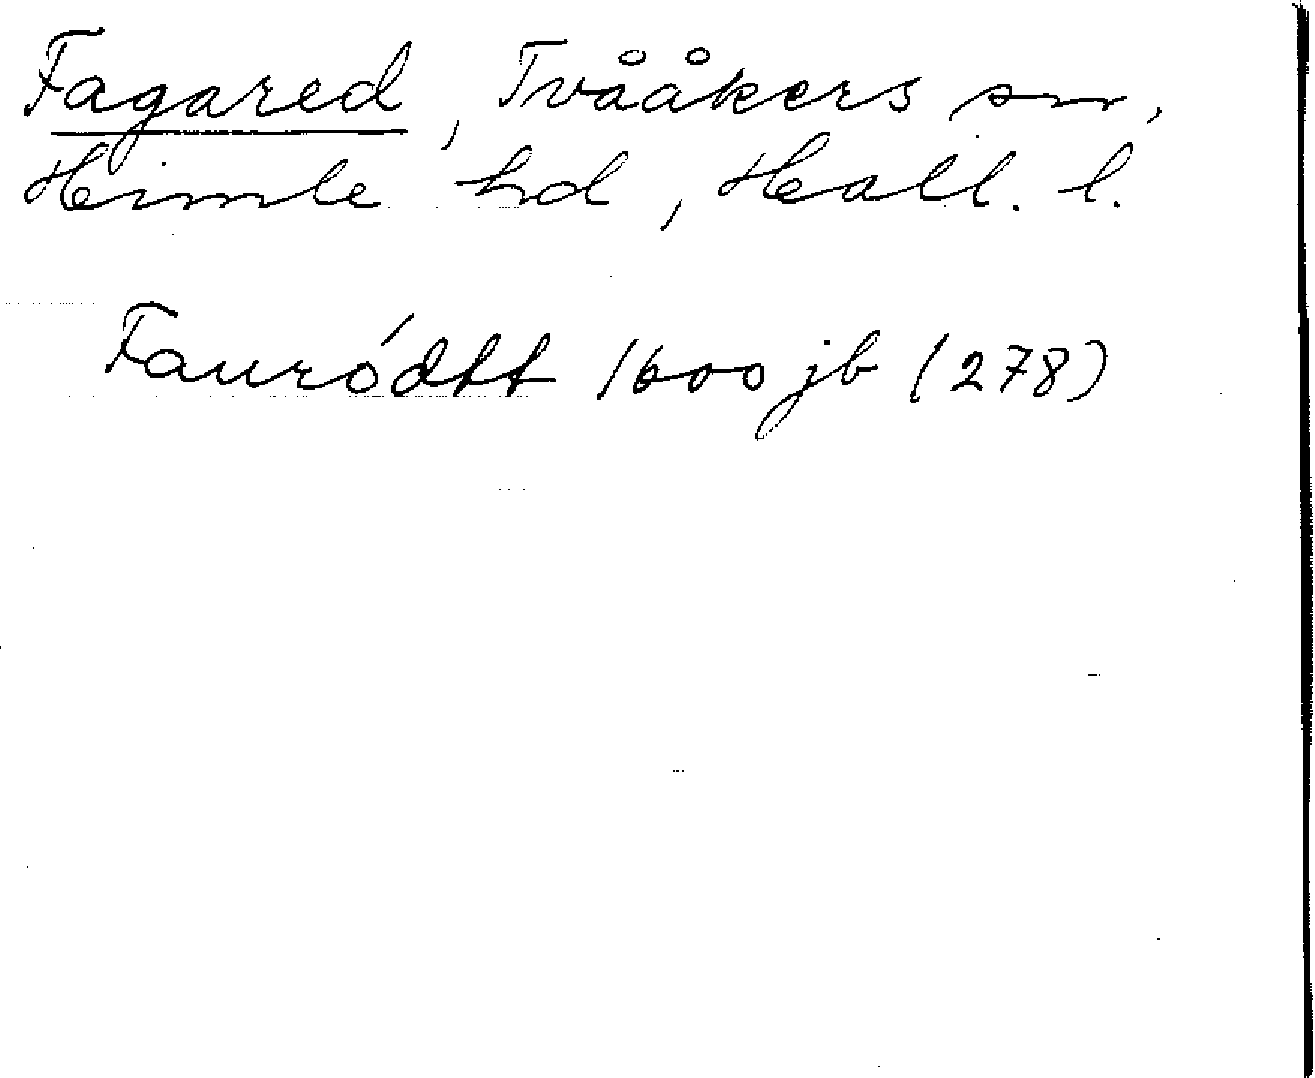 Fagared, Tvååkers sn,
Himle hd, Hall. l.
Fauródtt 1600 jb (278)